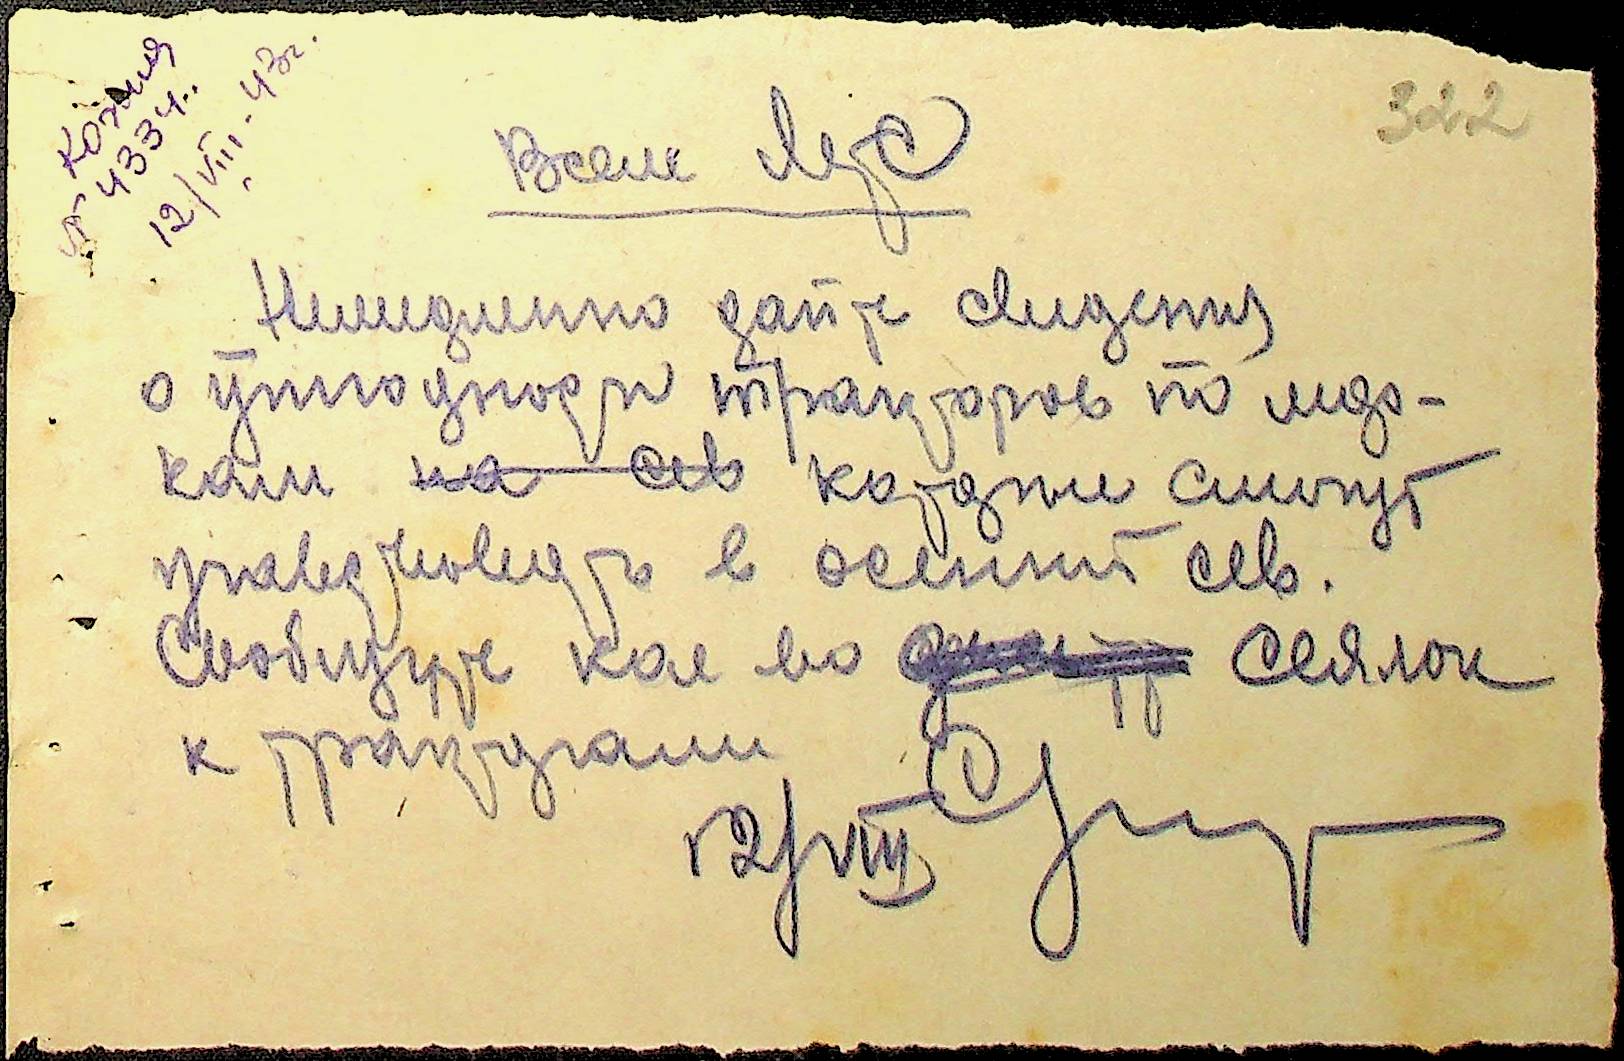 Копия
№ 4334.
12/VIII-43г.
322
Всем МТС
Немедленно дайте сведения
о пригодности тракторов по мар-
кам на сев которые смогут
участвовать в осенний сев.
Сообщите кол во сеялок
к тракторами
12/VIII